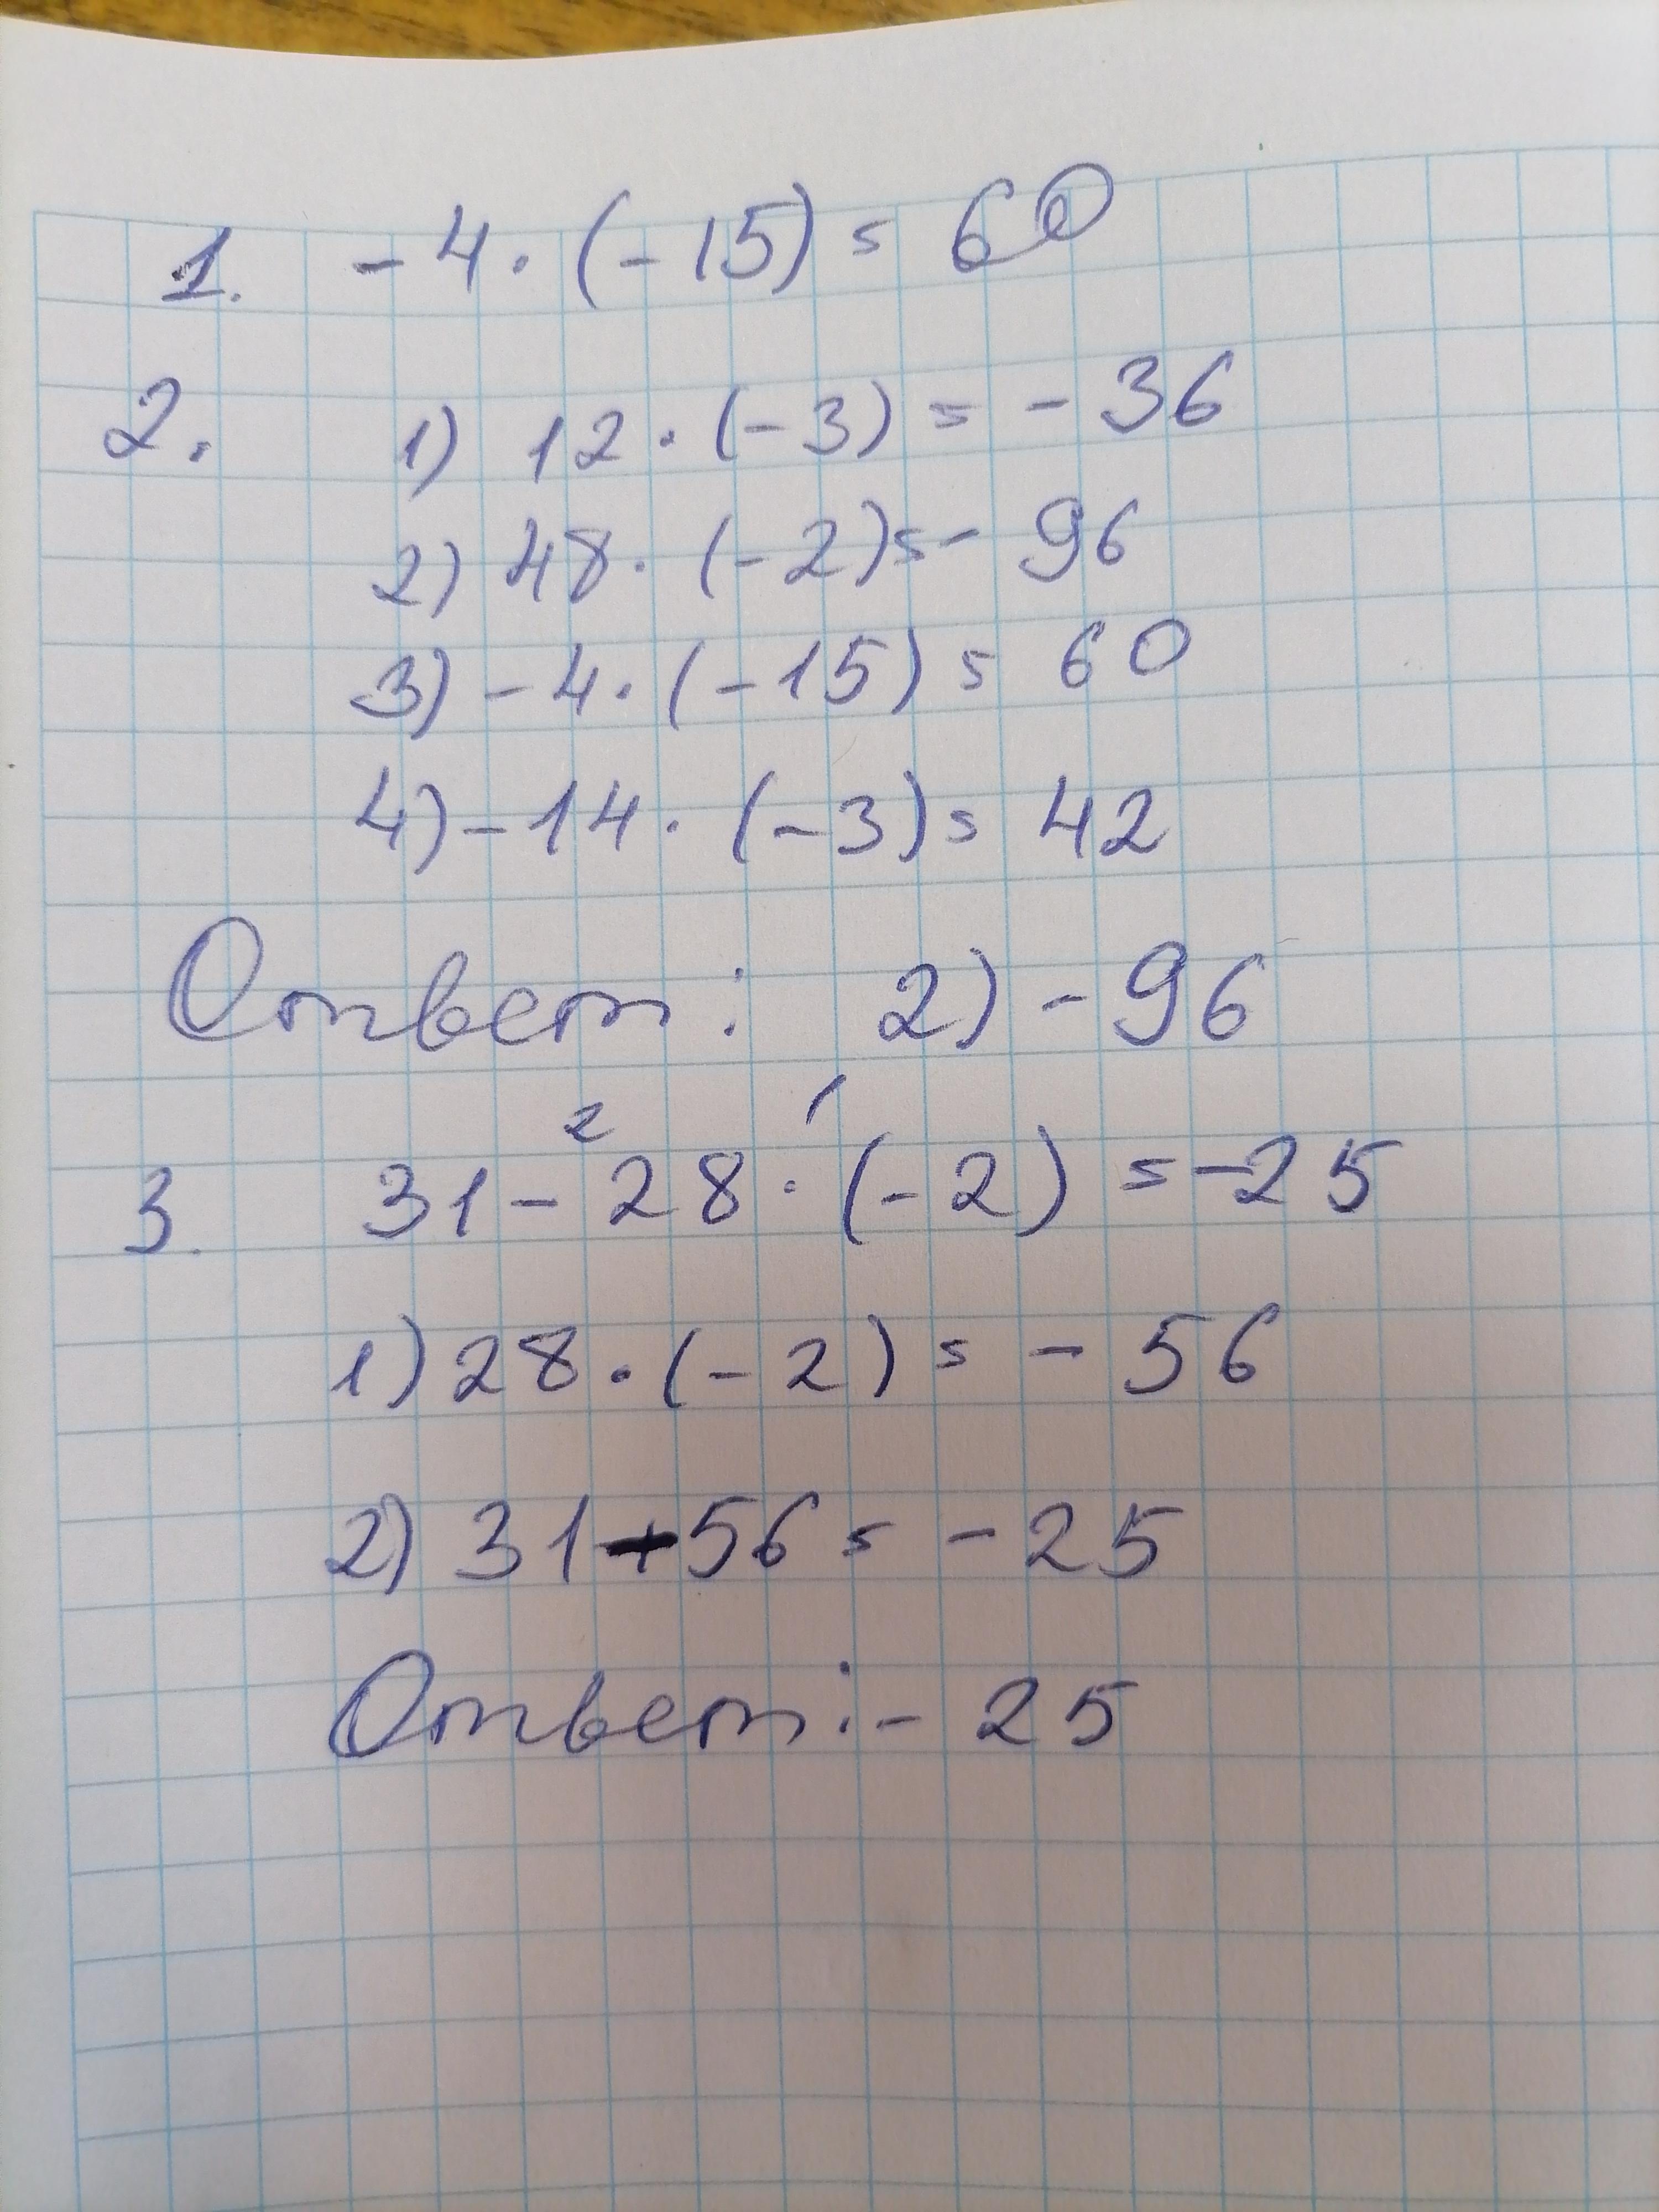 1. -4 · (-15) = 60
2. 1) 12 · (-3) = -36
2) 48 · (-2) = -96
3) -4 · (-15) = 60
4) -14 · (-3) = 42
Ответ: 2) -96
2 1
3. 31 - 28 · (-2) = -25
1) 28 · (-2) = -56
2) 31 + 56 = -25
Ответ: -25